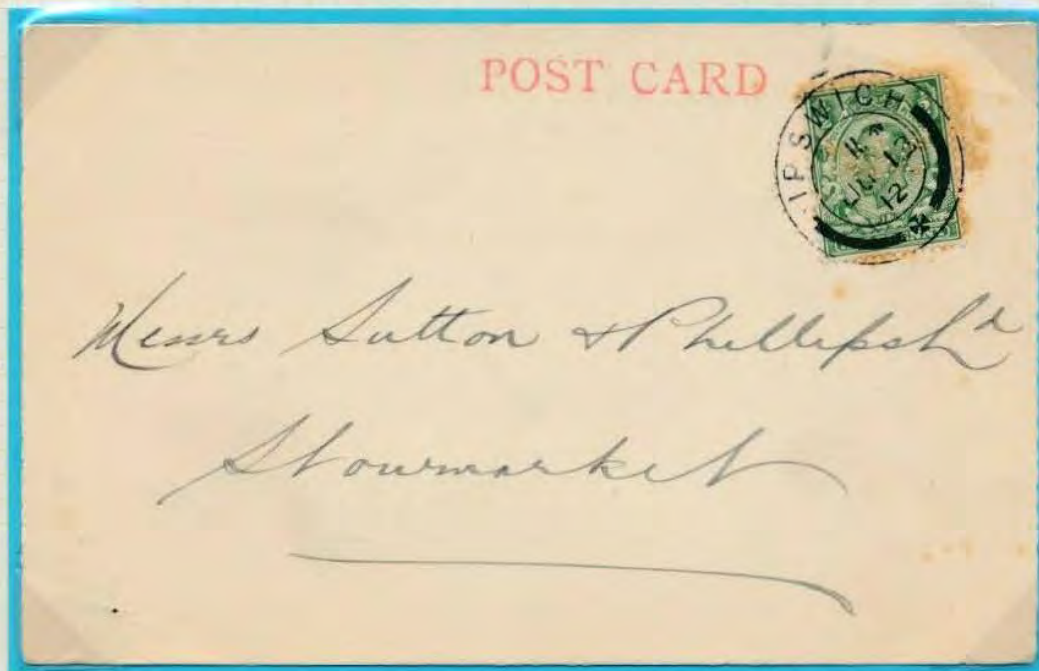 POST CARD
IPSWICH
12
Messrs Sutton & Phillips Ld
Stowmarket